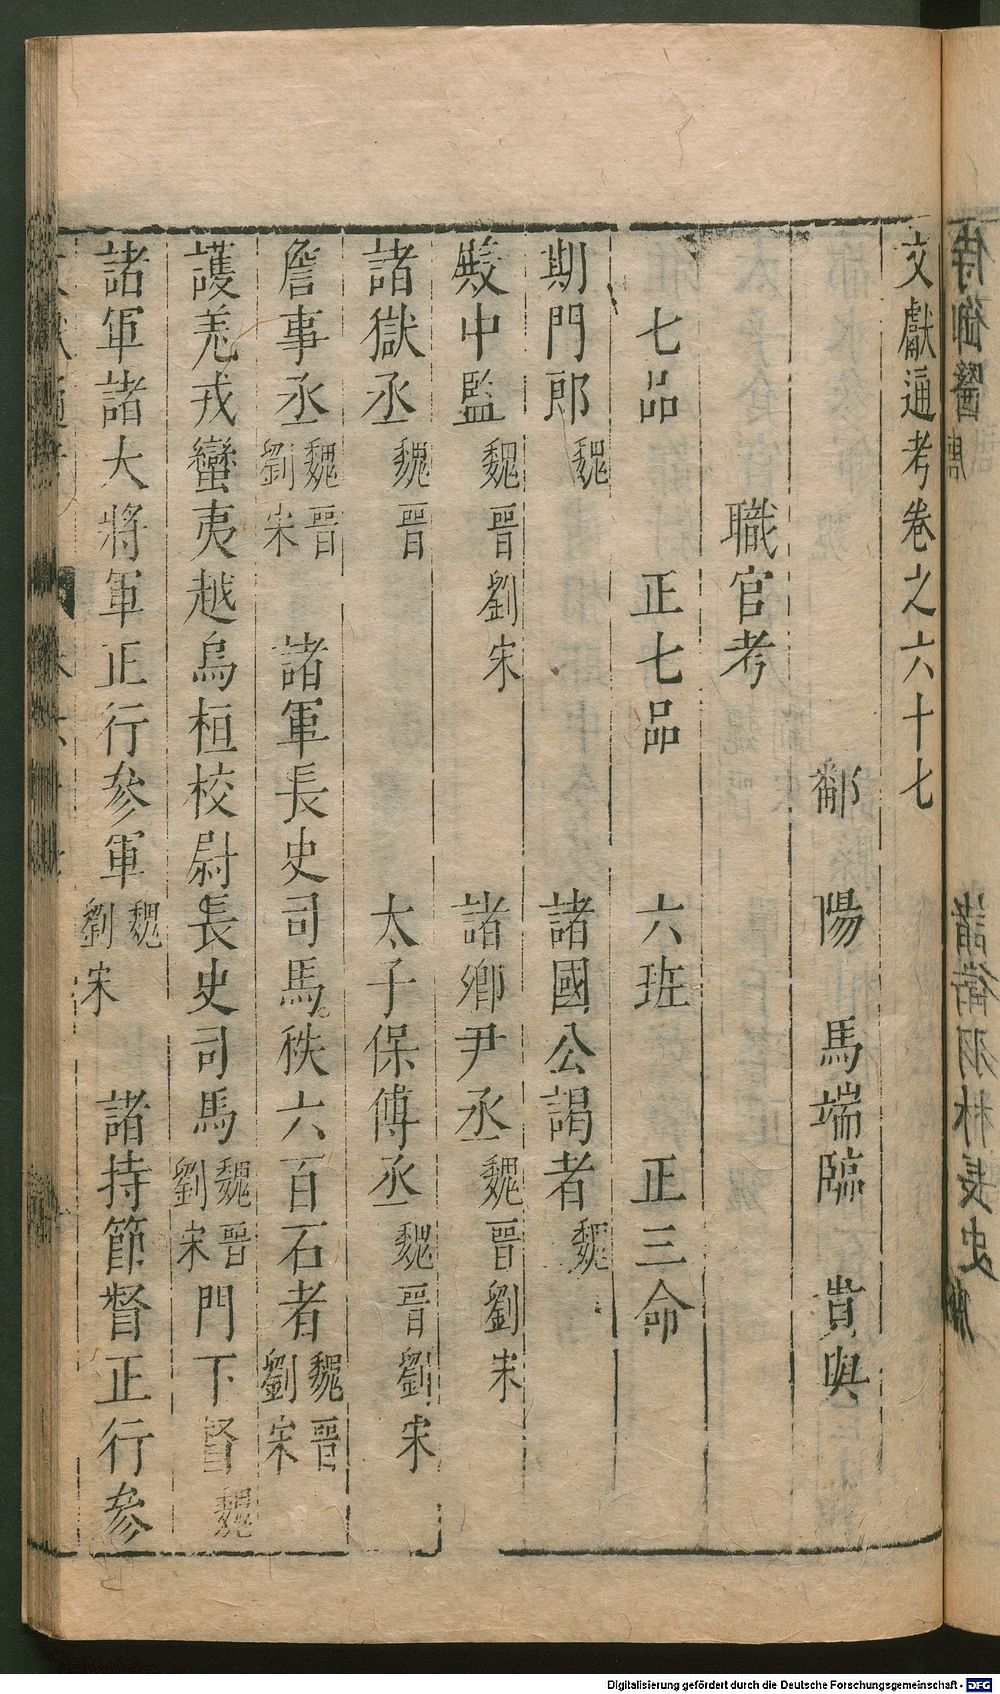 侍御醫
諸衛羽林長史
文獻通考卷之六十七
鄱陽馬端臨貴與
職官考
七品 正七品 六班 正三命
期門郎魏 諸國公謁者魏
殿中監魏晉劉宋 諸卿尹丞魏晉劉宋
諸獄丞魏晉 太子保傅丞魏晉劉宋
詹事丞魏晉劉宋 諸軍長史司馬秩六百石者魏晉劉宋
護羌戎蠻夷越烏桓校尉長史司馬魏晉劉宋門下督魏
諸軍諸大將軍正行參軍魏劉宋 諸持節督正行參
Digitalisierung gefördert durch die Deutsche Forschungsgemeinschaft - DFG